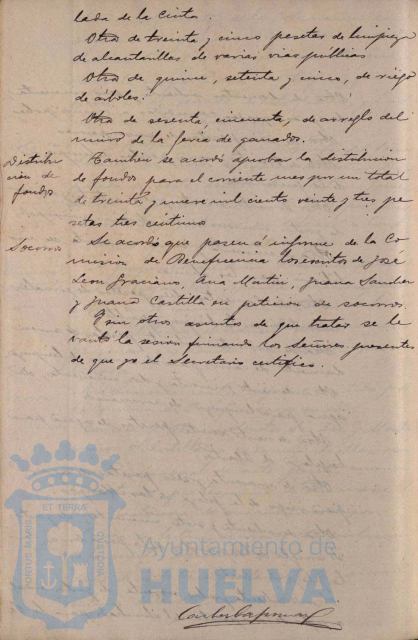 lada de la Cinta.
Otra de treinta y cinco pesetas de limpieza
de alcantarillas de varias vias públicas
Otra de quince, setenta y cinco, de riego
de árboles.
Otra de sesenta, cincuenta, de arreglo del
muro de la feria de ganados.
Distribu
cion de
fondos
Tambien se acordó aprobar la distribucion
de fondos para el corriente mes por un total
de treinta y nueve mil ciento veinte y tres pe
setas tres centimos
Socorros
Se acordó que pasen á informe de la Co
mision de Beneficencia los escritos de José
Leon Graciano, Ana Martin, Juana Sanchez
y Juana Castilla en peticion de socorros.
Y sin otros asuntos de que tratar se le
vantó la sesion firmando los Señores presentes
de que yo el Secretario certifico.
PORTUS MARIS
ET TERRÆ
CUSTODIA
Ayuntamiento de
HUELVA